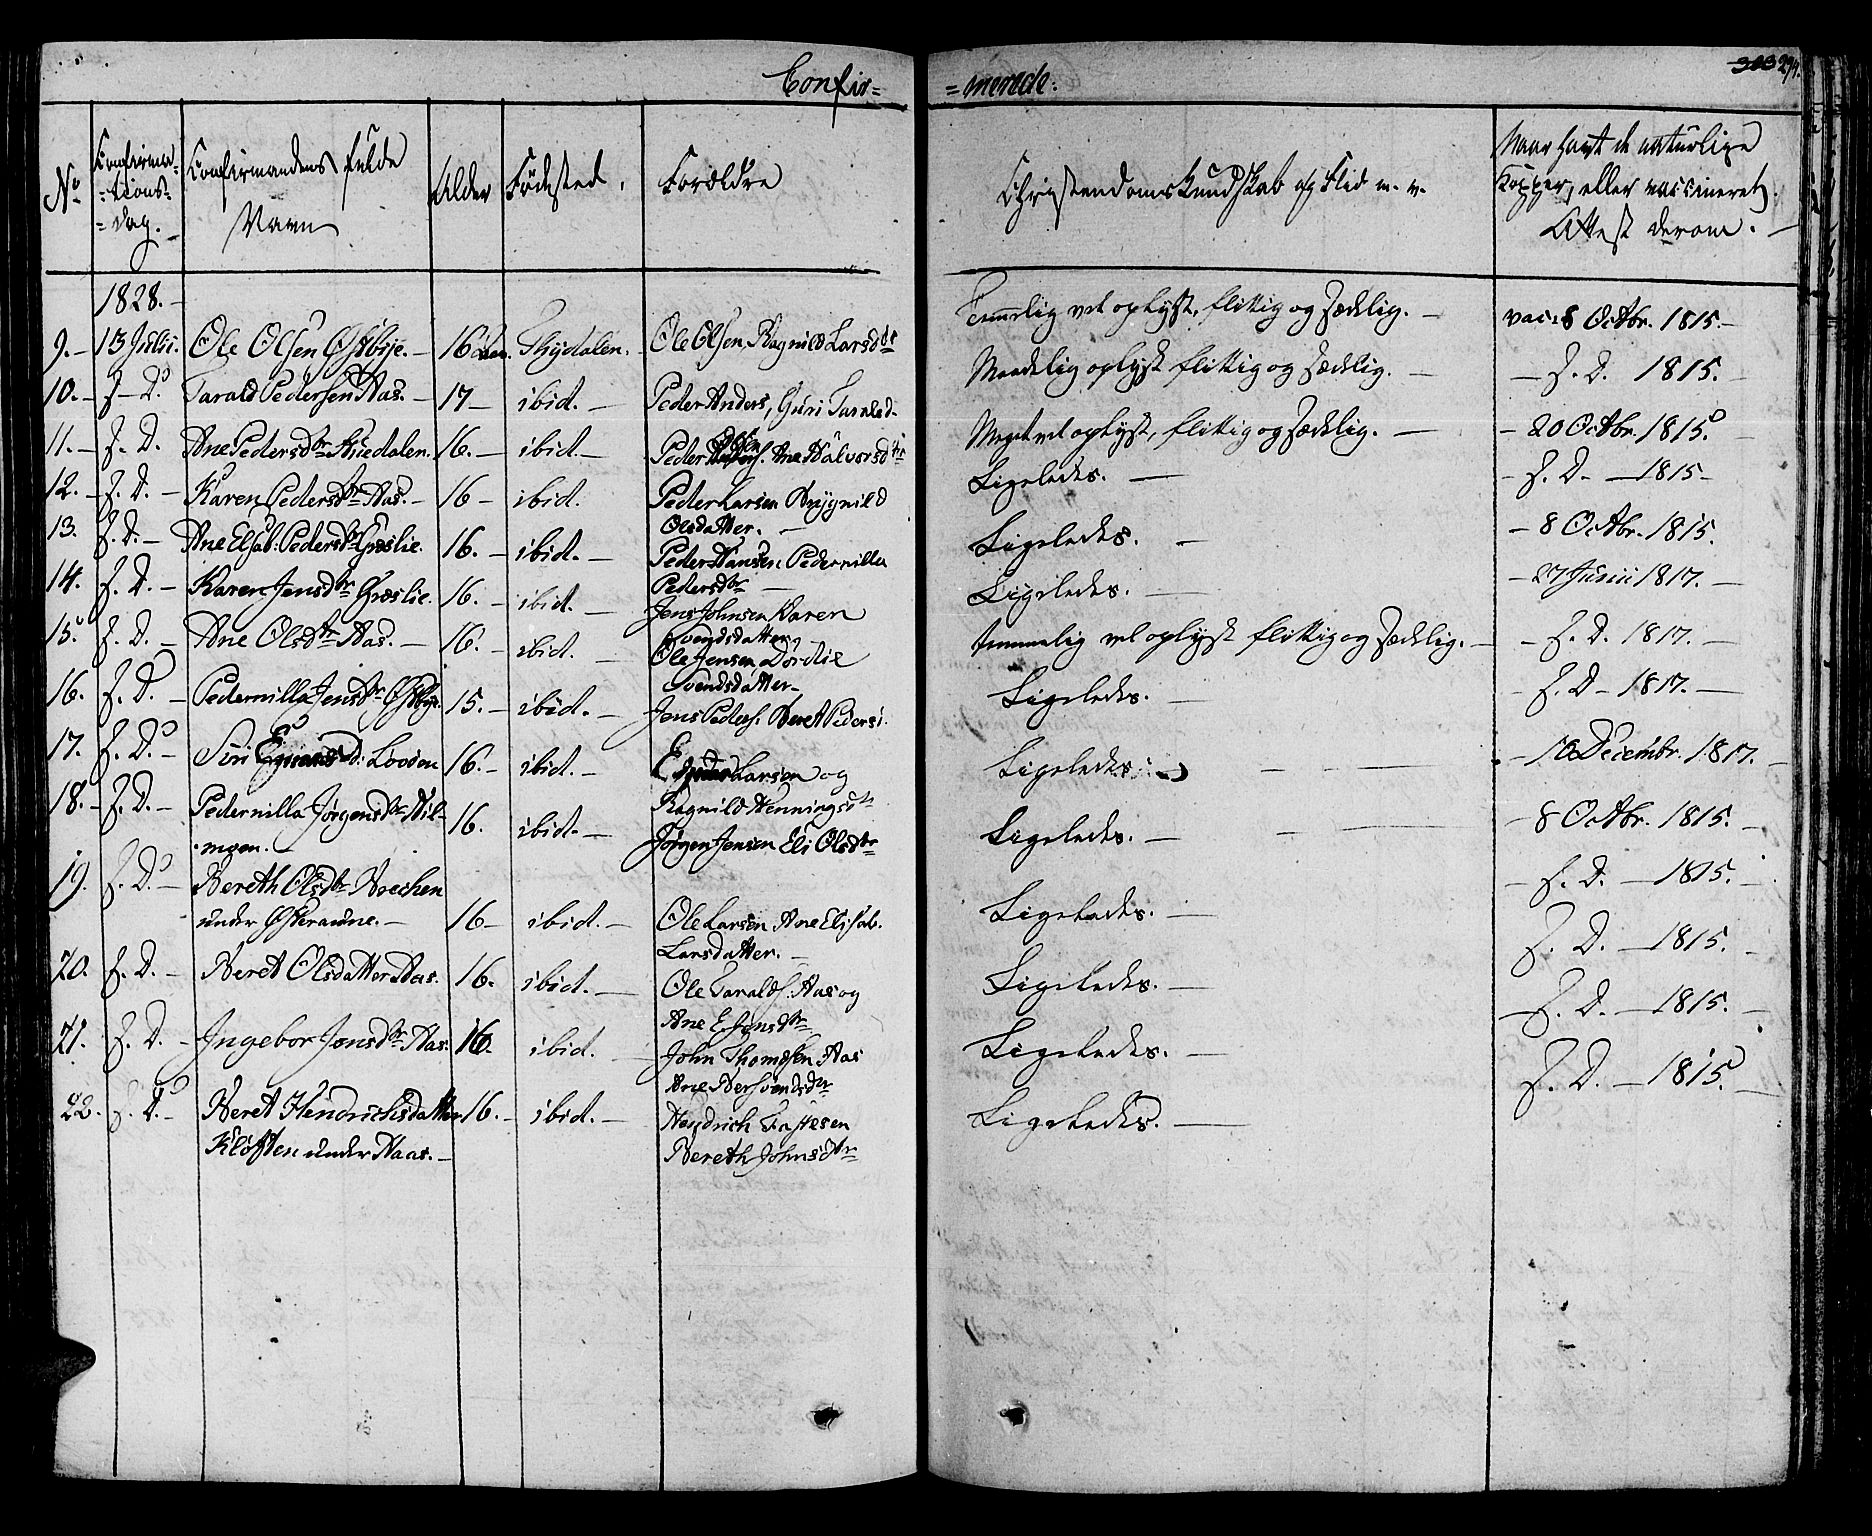 Confir=
=merede.
303 294.
No
Confirma-
=tions=
=dag.
Confirmandens fulde
Navn
Alder
Fødested,
Forældre
Christendoms Kundskab og Flid m. v.
Naar havt de naturlige
Kopper, eller vaccineret,
Attest derom. —
1828. —
9. — 13 Julii. Ole Olsen Østbye. — 16 Aar. Thydalen. Ole Olsen, Ragnild Larsddr Temmelig vel oplyst, flittig og sædelig. — vacc. 8 Octbr. 1815. —
10. — s. D. Tarald Pedersen Aas. — 17 — ibid. — Peder Anders, Guri Taralsd. Maadelig oplyst flittig og sædelig. — — s. D. 1815. —
11. — s. D. Ane Pedersdtr Stuedalen. 16. — ibid. — Peder Olsen Ane Halvorsdtr Meget vel oplyst, flittig og sædelig. — — 20 Octbr. 1815. —
12. — s. D. — Karen Pedersdtr Aas. — 16 — ibid. Peder Larsen Bryynild
Olsdatter. — Ligeledes. — — s. D. — 1815 —
13. s. D. — Ane Elsab: Pedersdtr Græslie. 16. — ibid. — Peder Hansen Pedernilla
Pedersdtr — Ligeledes. — — 8 Octbr. 1815.
14. s. D. — Karen Jensdtr Græslie. 16. — ibid. — Jens Johnsen Karen
Svendsdatter Ligeledes. — — 27 Junii 1817. —
15. s. D. — Ane Olsdtr Aas. — 16. — ibid. — Ole Jensen Dordie
Svendsdatter — temmelig vel oplyst flittig og sædelig. — — s. D. 1817. —
16. s. D. — Pedernilla Jensdtr Østbye. 15. — ibid. — Jens Peders. Beret Peders. Ligeledes. — — s. D — 1817. —
17. s. D. — Siri d. Løvøen 16. — ibid. — Larsen og
Ragnild Henningsdtr Ligeledes. — — 10 Decembr. 1817. —
18. — s. D. — Pedernilla Jørgensdtr Hil-
moen. — 16. ibid. — Jørgen Jensen Eli Olsdtr Ligeledes. — — 8 Octbr. 1815. —
19. s. D. — Bereth Olsdtr Brechen
under Østeraune. — 16 — ibid. — Ole Larsen Ane Elisab.
Larsdatter. — Ligeledes. — — s. D. — 1815. —
20. s. D. — Beret Olsdatter Aas. 16. ibid. — Ole Taralds. Aas og
Ane Ejensdtr Ligeledes. — s. D. — 1815.
21. s. D. — Ingebor Jonsdtr Aas. 16. ibid. — John Thomesen Aas
Ane Bersvendsdtr Ligeledes. — — s. D. — 1815. —
22. s. D. — Beret Hendrichsdatter
Kløften under Aas. — 16. — ibid. — Hendrich Fastesen
Bereth Johnsdtr Ligeledes. — s. D. — 1815. —